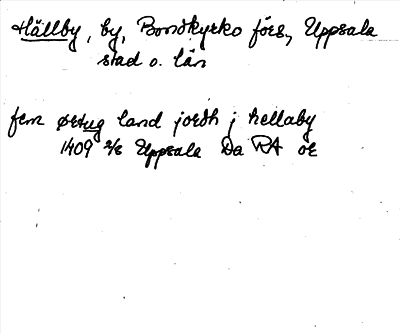 Hällby, by, Bondkyrko förs., Uppsala
stad o. län
fem ørtug land jordh j hellaby
1409 2/8 Uppsala Da RA or